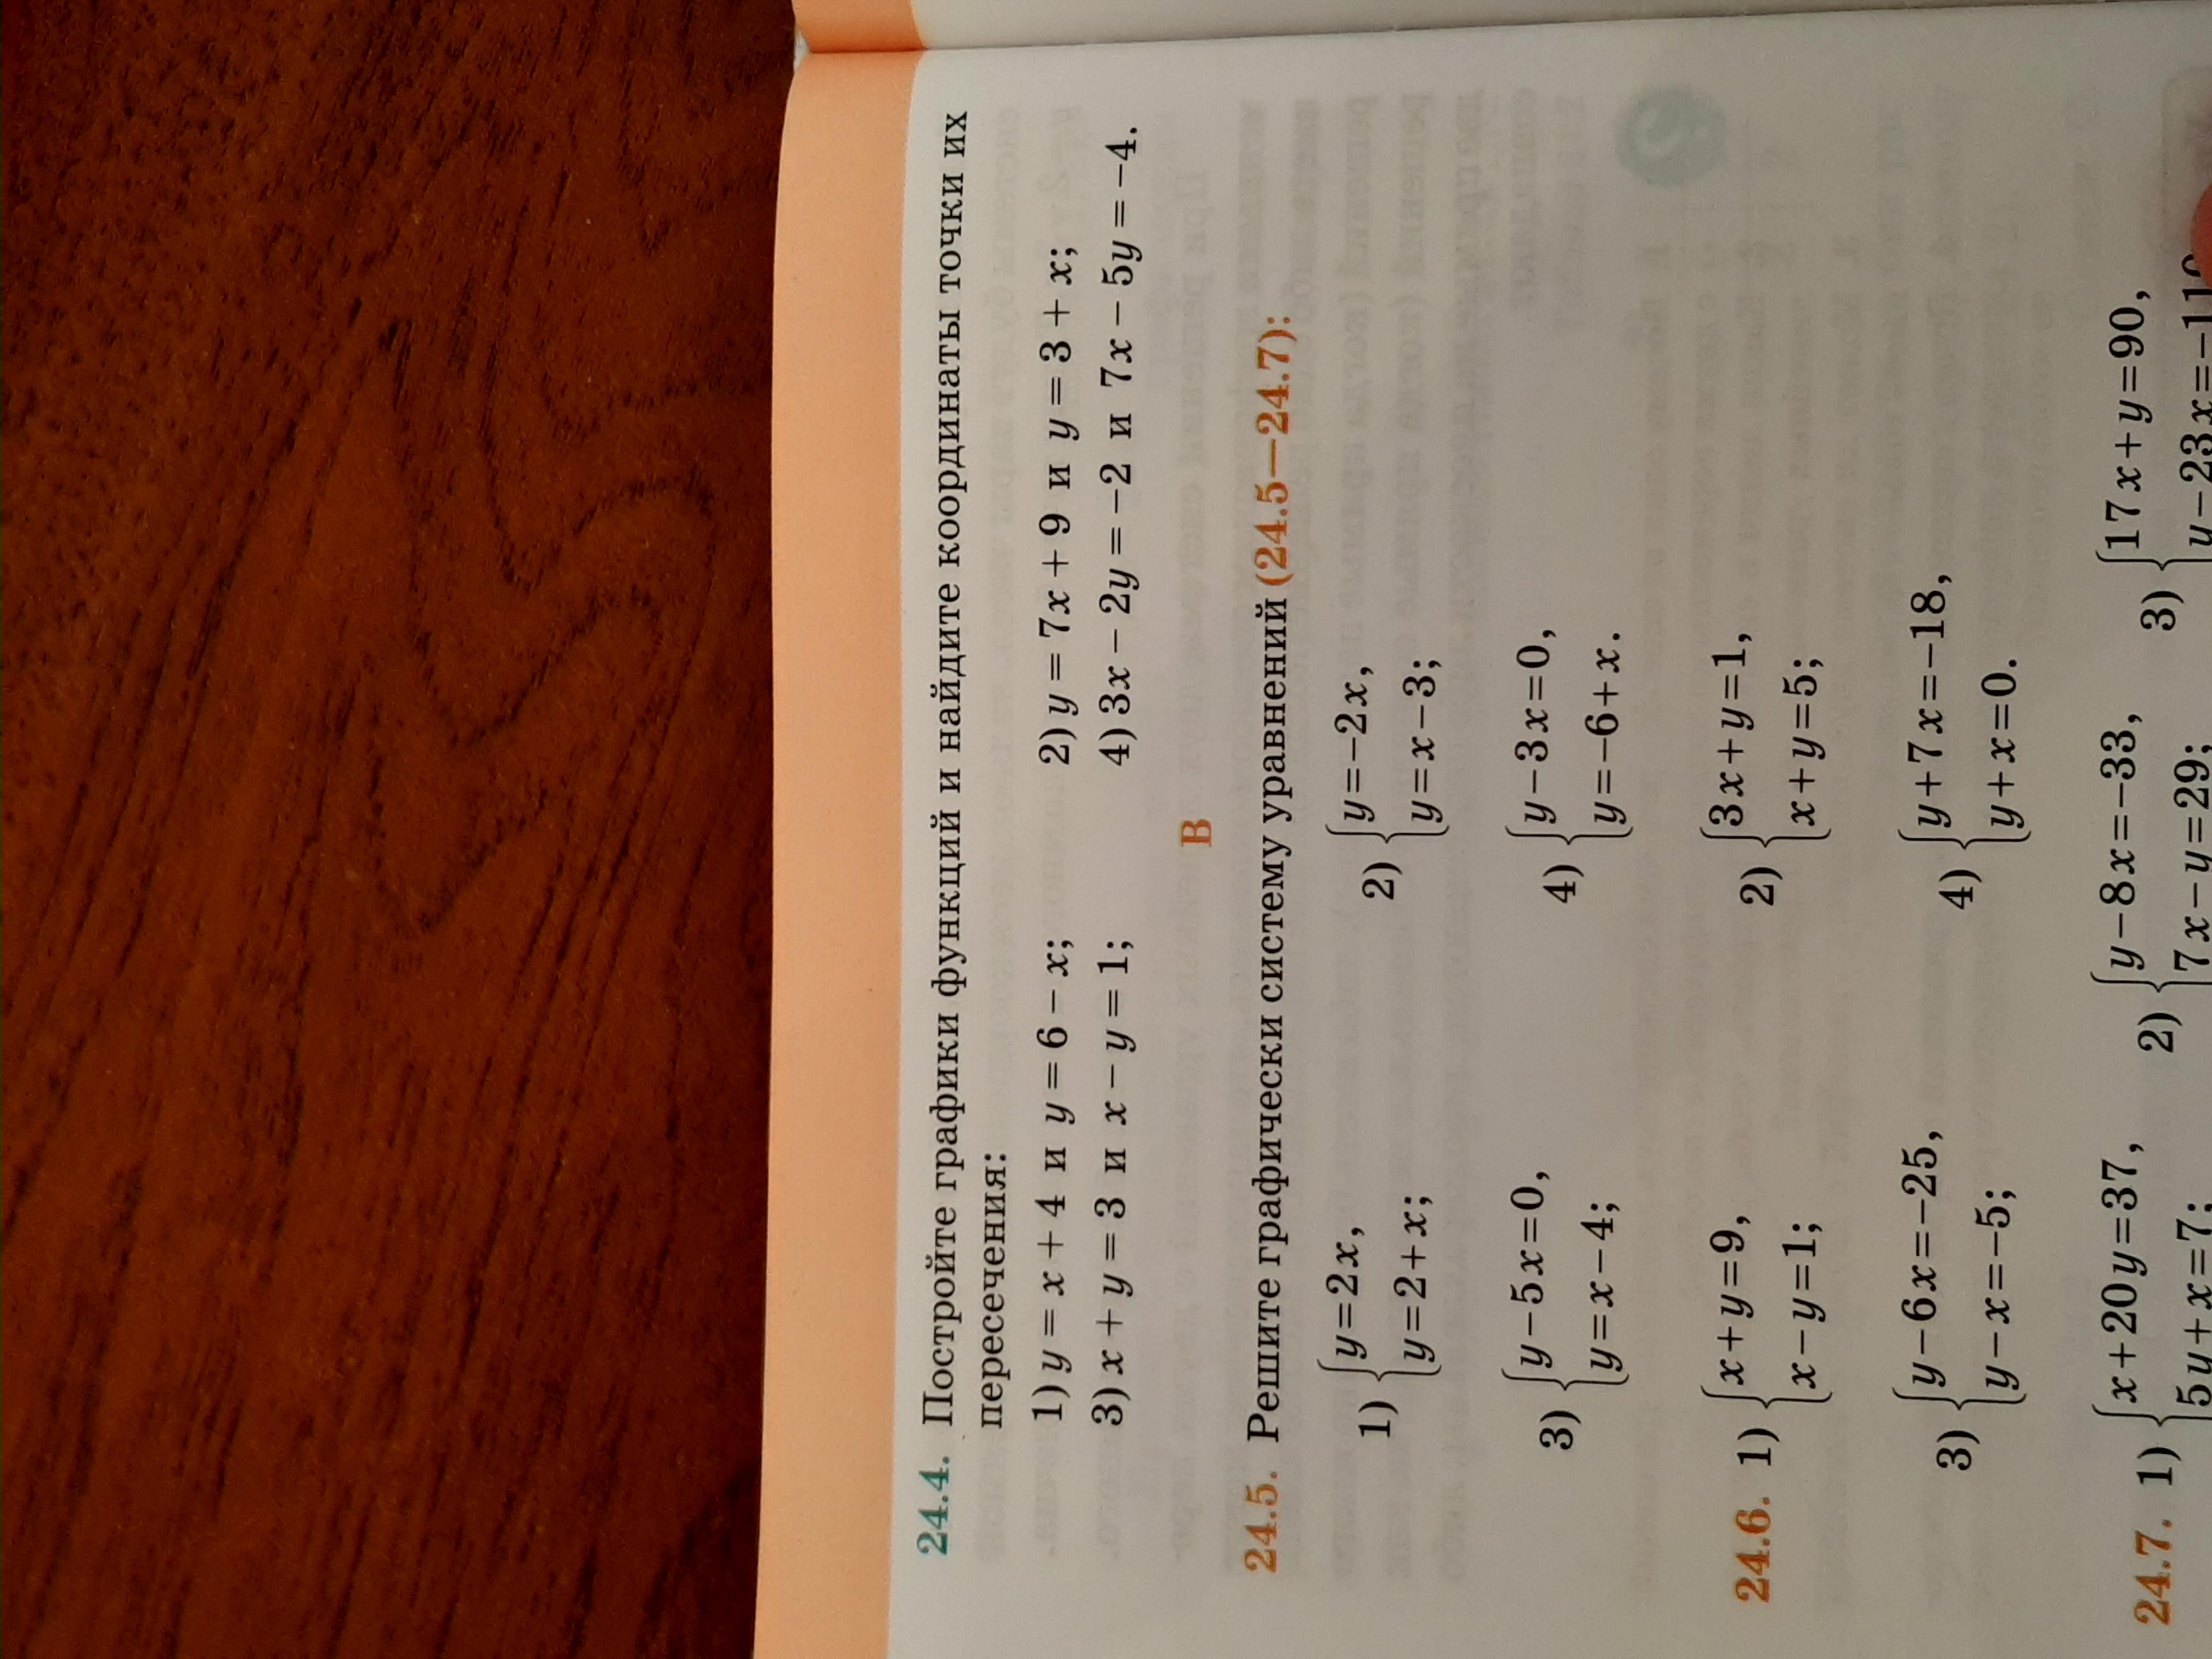 24.4. Постройте графики функций и найдите координаты точки их
пересечения:
1) y = x + 4 и y = 6 − x; 2) y = 7x + 9 и y = 3 + x;
3) x + y = 3 и x − y = 1; 4) 3x − 2y = −2 и 7x − 5y = −4.
В
24.5. Решите графически систему уравнений (24.5—24.7):
1) { y=2x, 2) { y=−2x,
y=2+x; y=x−3;
3) { y−5x=0, 4) { y−3x=0,
y=x−4; y=−6+x.
24.6. 1) { x+y=9, 2) { 3x+y=1,
x−y=1; x+y=5;
3) { y−6x=−25, 4) { y+7x=−18,
y−x=−5; y+x=0.
24.7. 1) { x+20y=37, 2) { y−8x=−33, 3) { 17x+y=90,
5y+x=7; 7x−y=29; y−23x=−11